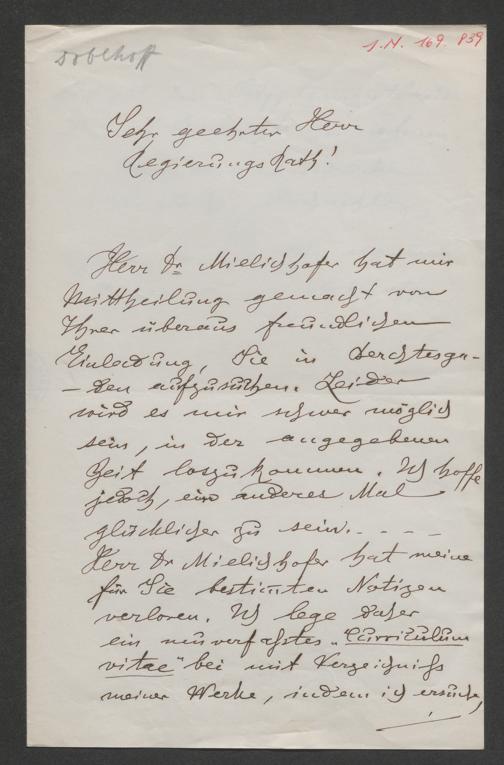 Doblhoff
J.N. 169.839
Sehr geehrter Herr
Regierungsrath!
Herr Dr Mielichhofer hat mir
Mittheilung gemacht von
Ihrer überaus freundlichen
Einladung, Sie in Berchtesga-
-den aufzusuchen. Leider
wird es mir schwer möglich
sein, in der angegebenen
Zeit loszukommen. Ich hoffe
jedoch, ein anderes Mal
glücklicher zu sein. - - - -
Herr Dr Mielichhofer hat meine
für Sie bestimten Notizen
verloren. Ich lege daher
ein neuverfaßtes „Curriculum
vitae" bei mit Verzeichniß
meiner Werke, indem ich ersuche,